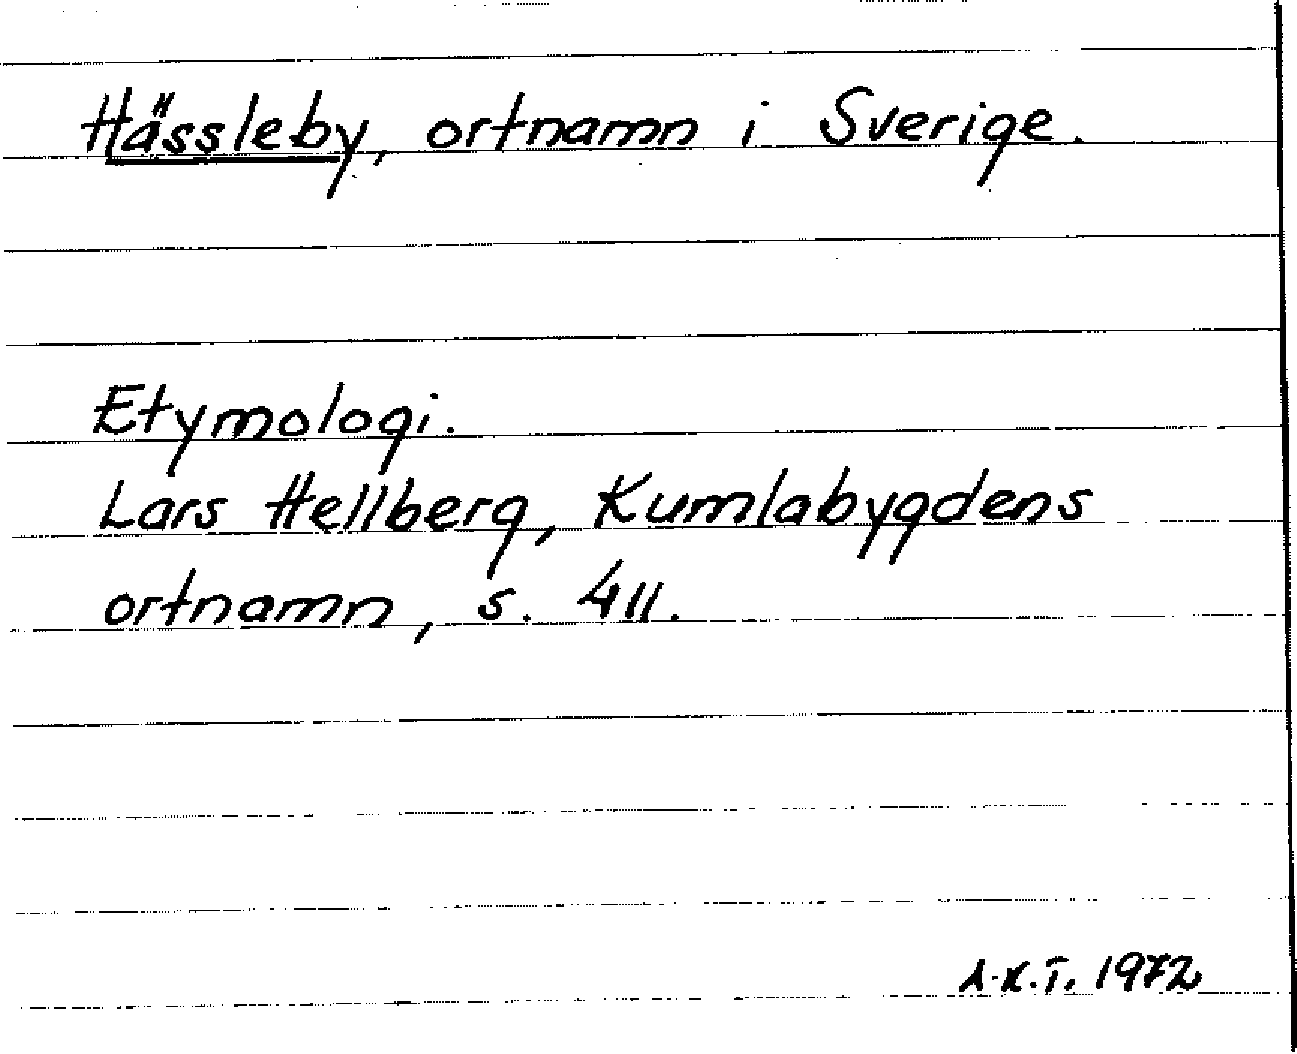 Hässleby, ortnamn i Sverige.
Etymologi.
Lars Hellberg, Kumlabygdens
ortnamn, s. 411.
A.K.T. 1972